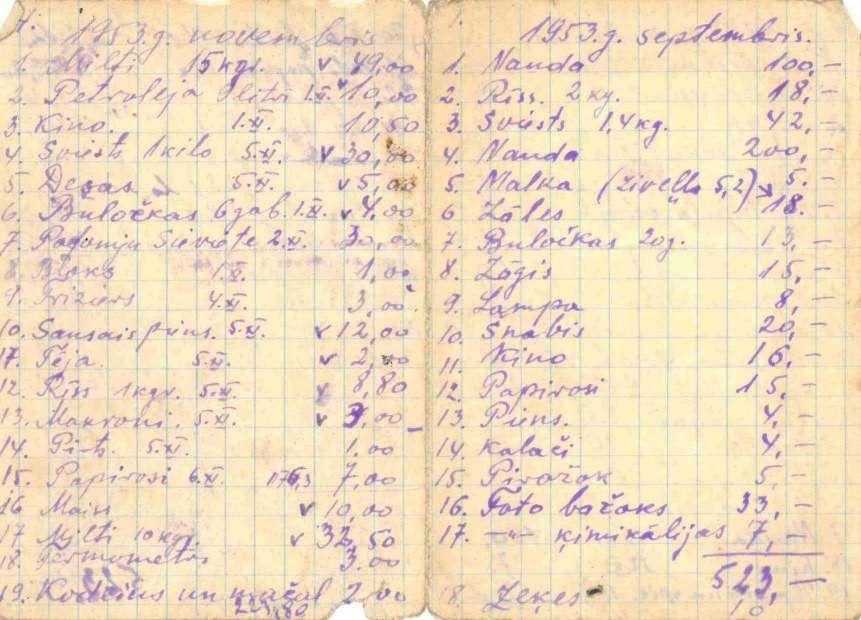 1953.g. novembris
1. Milti 15kgr. v 49,00
2. Petroleja litri 1.XI. v 10,00
3. Kino. 1.XI. 10,50
4. Sviests 1kilo 5.XI. v 30,00
5. Desas 5.XI. v 5,00
6. Buločkas 6gab. 1.XI. v 4,00
7. 2.XI. 30,00
8. Bloks 1.XI. 1,00
9. Frizieris 4.XI. 3,00
10. Sausais piens. 5.XI. v 12,00
11. Tēja. 5.XI. v 2,00
12. Rīss 1kgr. 5.XI. v 8,80
13. Makroni. 5.XI. v 3,00 -
14. Pirts. 5.XI. 1.00
15. Papirosi 6.XI. 7,00
16 Maiss v 10,00
17 Milti 10kgr. v 32,50
18. Termometrs 3.00
19. un 2,00
1.
1953.g. septembris.
1. Nauda 100,-
2. Rīss. 2 kg. 18,-
3. Sviests 1,4kg. 42,-
4. Nauda 200,-
5. Malka 5.-
6 Zāles 18.-
7. Buločkas 20g. 13,-
8. Zāģis 15,-
9. Lampa 8,-
10. Šnabis 20,-
11. Kino 16,-
12. Papirosi 15,-
13. Piens. 4,-
14. Kalači 4,-
15. Pirožok 5,-
16. Foto bačoks 33,-
17. -"- ķimikālijas 7,-
523,-
18. Zeķes 10